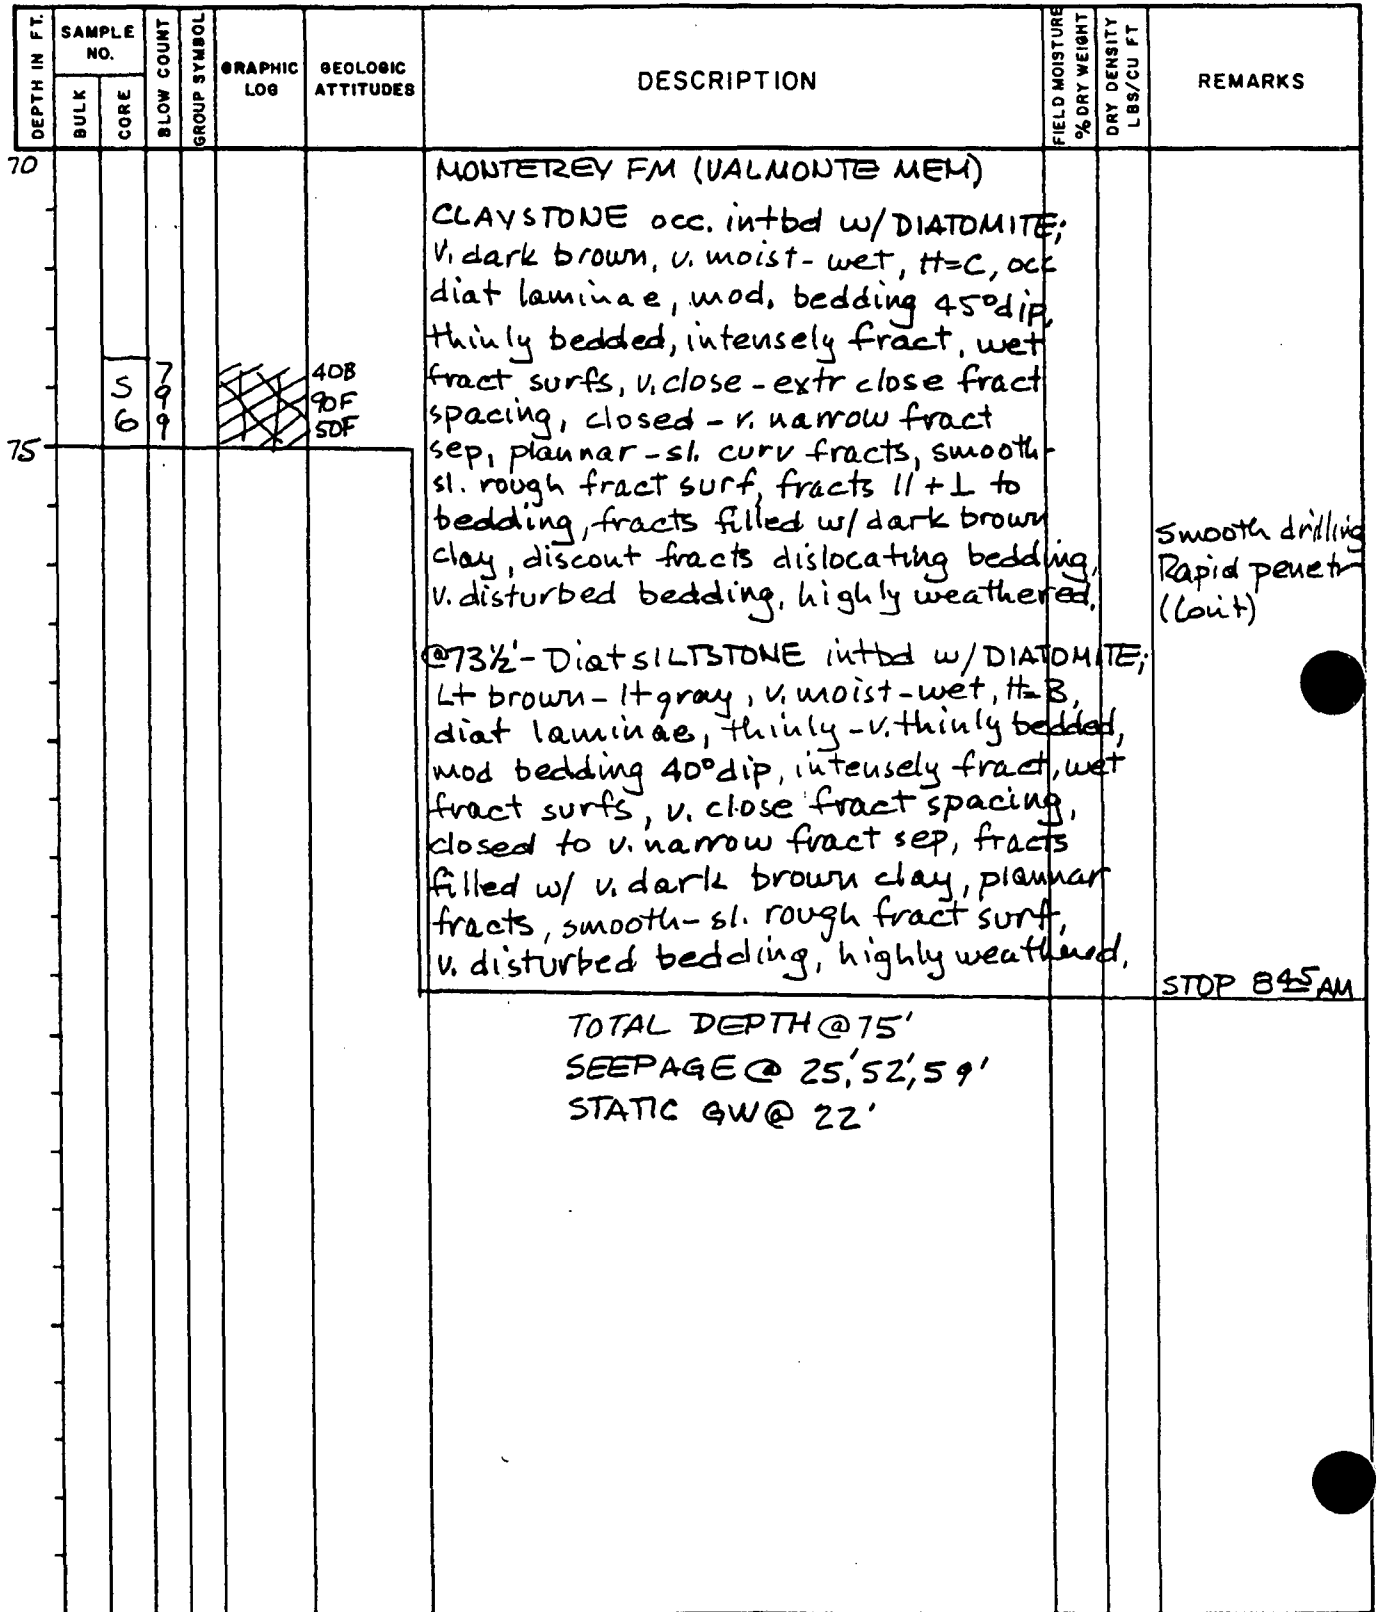 DEPTH IN FT.
SAMPLE NO.
BULK
CORE
BLOW COUNT
GROUP SYMBOL
GRAPHIC LOG
GEOLOGIC ATTITUDES
DESCRIPTION
FIELD MOISTURE % DRY WEIGHT
DRY DENSITY LBS/CU FT
REMARKS
70
MONTEREY FM (VALMONTE MEM)
CLAYSTONE occ. intbd w/ DIATOMITE;
V. dark brown, v. moist - wet, H=C, occ
diat laminae, mod. bedding 45° dip,
thinly bedded, intensely fract, wet
fract surfs, v. close - extr close fract
spacing, closed - v. narrow fract
sep, plannar - sl. curv fracts, smooth -
sl. rough fract surf, fracts // + ⊥ to
bedding, fracts filled w/ dark brown
clay, discont fracts dislocating bedding,
v. disturbed bedding, highly weathered.
S 7 40B
9 90F
6 9 50F
75
Smooth drilling
Rapid penetr
(Con't)
@73½' - Diat SILTSTONE intbd w/ DIATOMITE;
Lt brown - lt gray, v. moist - wet, H=B,
diat laminae, thinly - v. thinly bedded,
mod bedding 40° dip, intensely fract, wet
fract surfs, v. close fract spacing,
closed to v. narrow fract sep, fracts
filled w/ v. dark brown clay, plannar
fracts, smooth - sl. rough fract surf,
v. disturbed bedding, highly weathered.
STOP 8 45 AM
TOTAL DEPTH @ 75'
SEEPAGE @ 25', 52', 59'
STATIC GW @ 22'